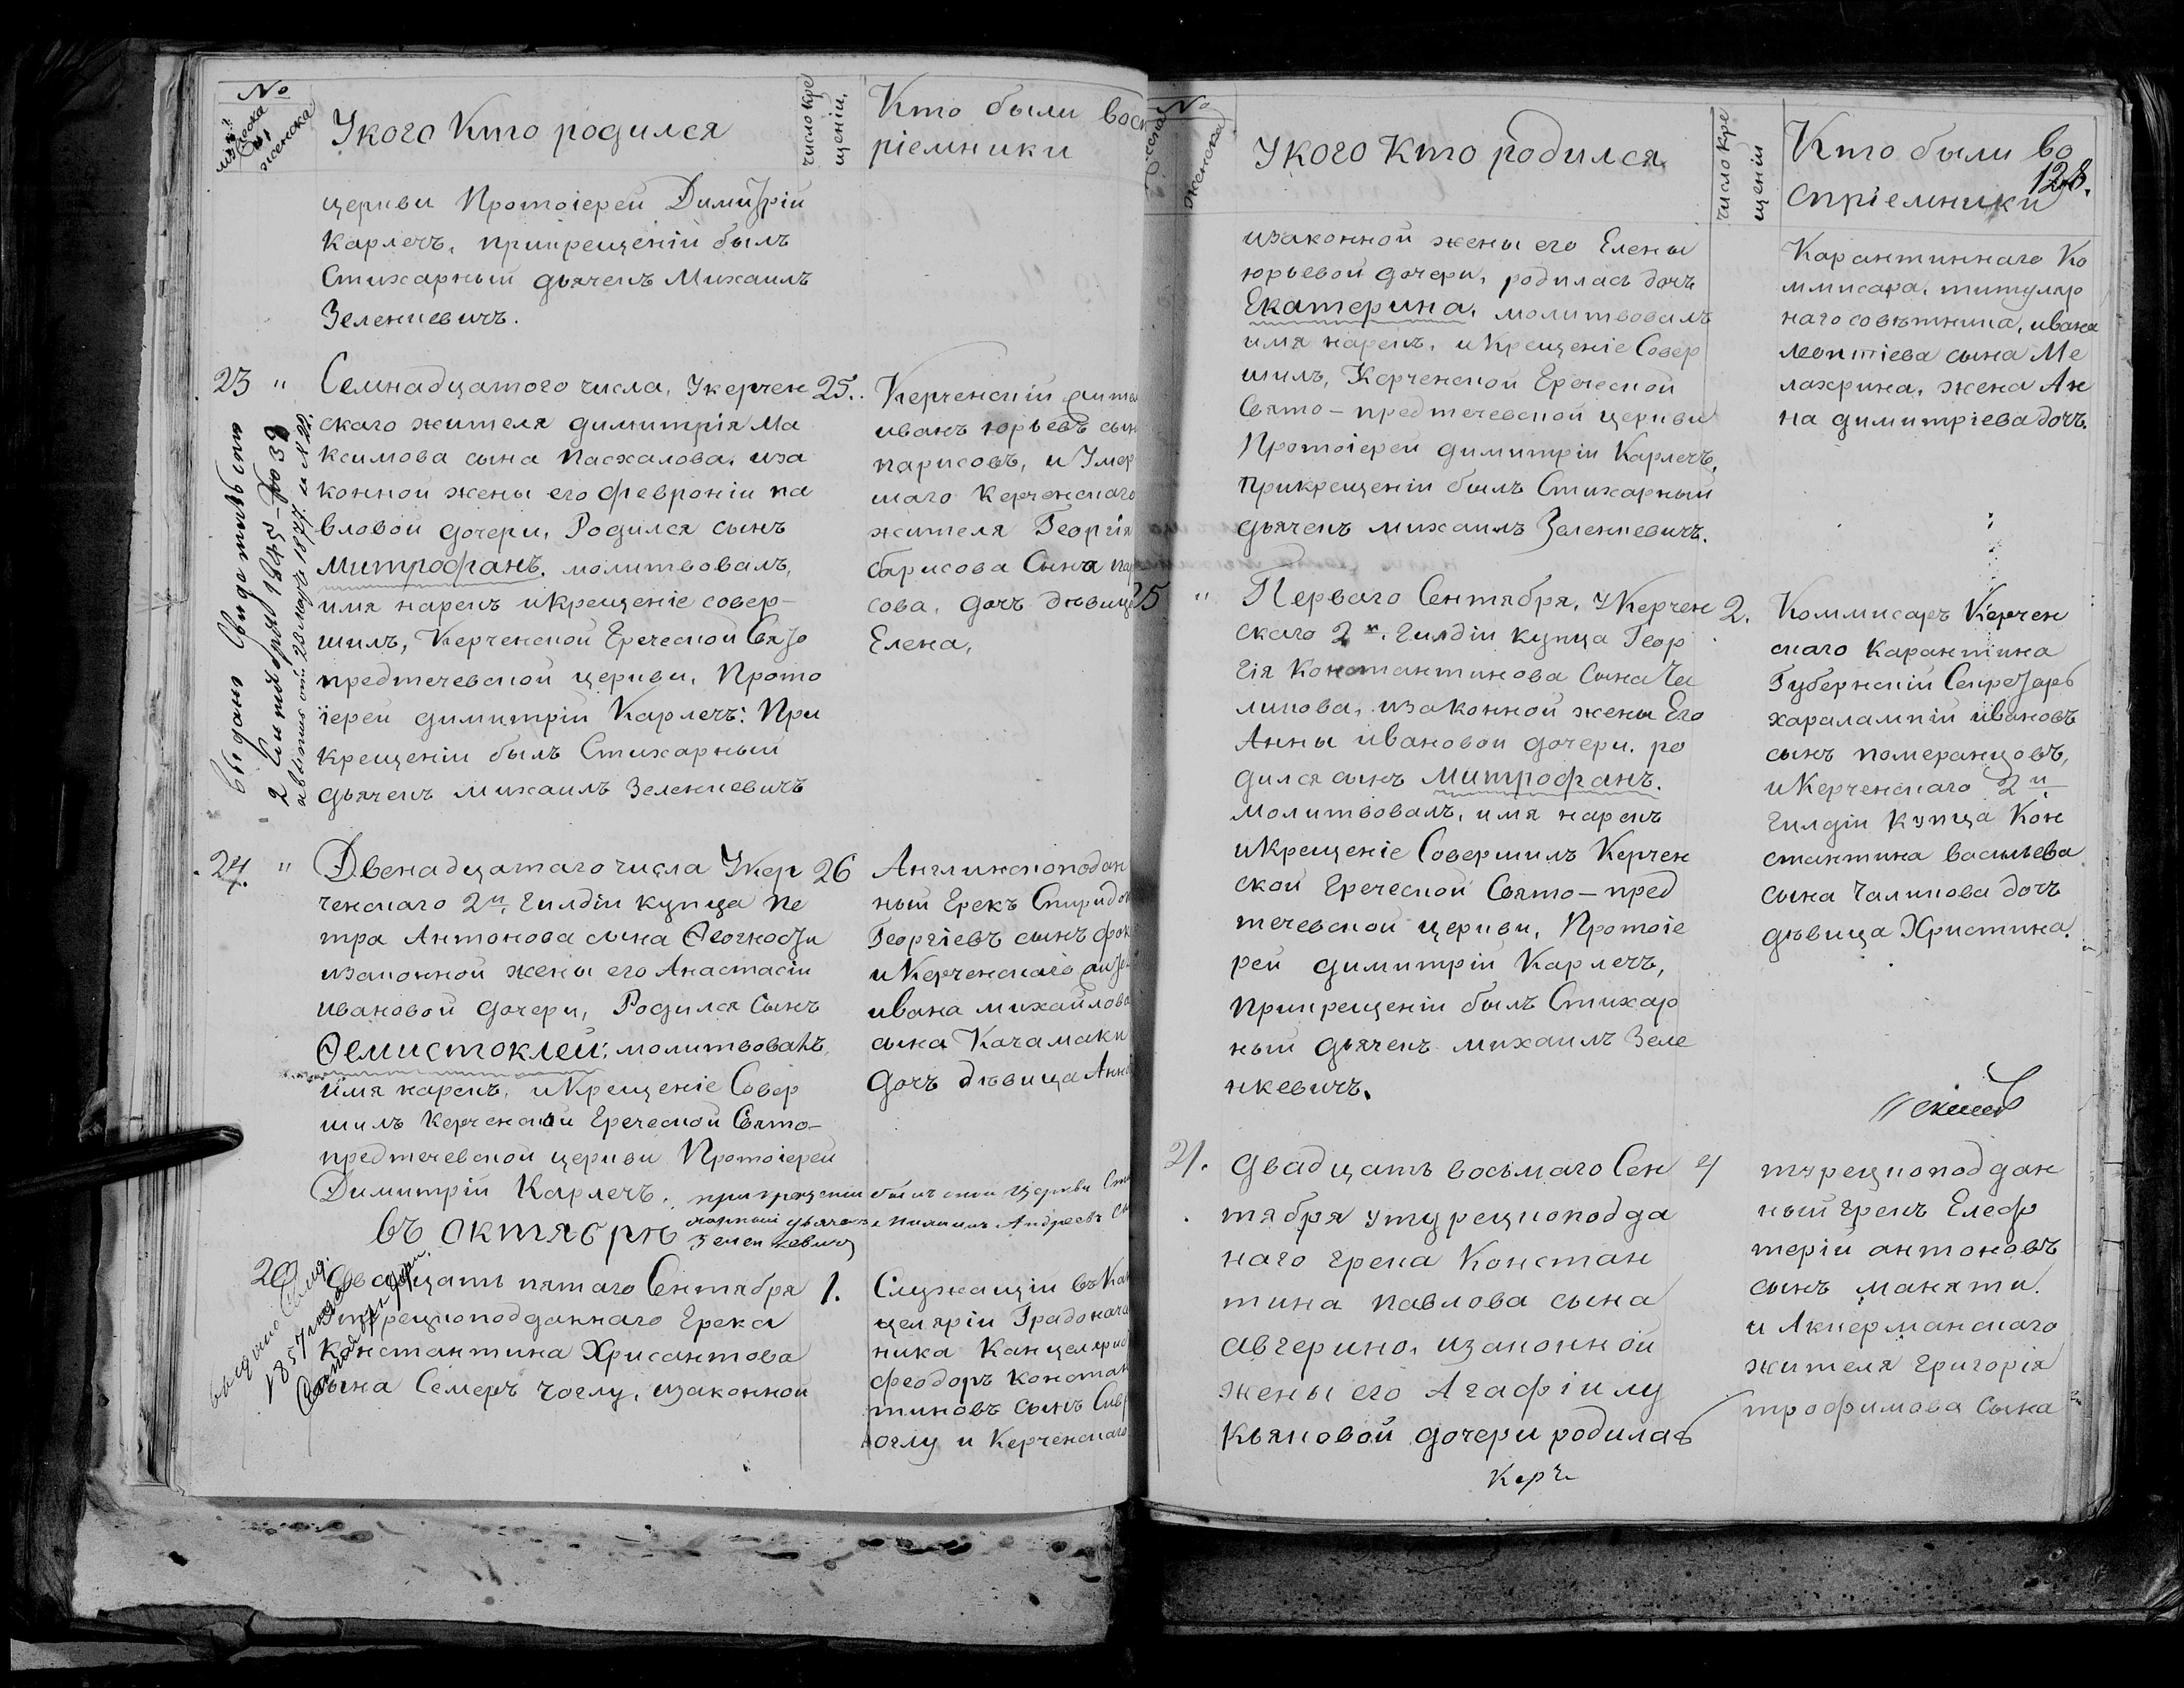 №
мужеска
женска
Укого Кто родился
число кре
щенiи.
Кто были восп
рiемники
церкви Протоiерей Димитрiй
Карлечъ, прикрещенiи былъ
Стихарный дьячекъ Михаилъ
Зеленкевичъ.
23 "
Семнадцатого числа, Укерчен
скаго жителя димитрiя Ма
ксимова сына Пасхалова, иза
конной жены его февронiи па
вловой дочери, Родился сынъ
митрофанъ. молитвовалъ,
имя нарекъ икрещенiе совер-
шилъ, Керченской Греческой Свято
предтечевской церкви, Прото
iерей димитрiй Карлечъ: При
крещенiи былъ Стихарный
дьячекъ михаилъ Зеленкевичъ
25.
Керченскiй жите
иванъ юрьевъ сын
парисовъ, и Умер
шаго Керченскаго
жителя Георгiя
барисова Сына пар
сова, дочь дѣвице
Елена,
выдано Свидетельство
24. "
Двенадцатаго числа Укер
ченскаго 2й. Гилдiи купца Пе
тра Антонова сына Ѳеогности
изаконной жены его Анастасiи
ивановой дочери, Родился Сынъ
Ѳемистоклей: молитвовалъ,
имя нарекъ, икрещенiе Совер
шилъ Керченской Греческой Свято-
предтечевской церкви Протоiерей
Димитрiй Карлечъ. прикрещенiи былъ сной Церкви Сти
харный дьячекъ Михаилъ Андреевъ Сы
Зеленкевичъ
26
Англинскоподан
ный Грекъ Спиридон
Георгiевъ сынъ фок
иКерченскаго жите
ивана михайлова
сына Качамаки
дочъ дѣвица Анна
въ октябрѣ
20
Двадцать пятаго Сентября
Утурецкоподданнаго Грека
Константина Хрисантова
сына Семерчоглу, изаконной
1.
Служащiи въКан
целярiи Градонача
ника Канцеляри
феодоръ констан
тиновъ сынъ Сивр
оглу и Керченскаго
№
женска
Укого Кто родился
число кре
щенiи
Кто были во
спрiемники
128.
изаконной жены его Елены
юрьевой дочери, родилась дочъ
Екатерина, молитвовалъ
имя нарекъ, икрещенiе Совер
шилъ, Керченской Греческой
Свято-предтечевской церкви
Протоiерей димитрiй Карлечъ,
Прикрещенiи былъ Стихарный
дьячекъ михаилъ Зеленкевичъ.
Карантиннаго Ко
ммисара, титуляр
наго совѣтника, ивана
леонтiева сына Ме
лахрина, жена Ан
на димитрiева дочъ.
25 "
Перваго Сентября, Укерчен
скаго 2й. Гилдiи купца Геор
гiя Константинова Сына Ча
ликова, изаконной жены Его
Анны ивановой дочери, ро
дился сынъ митрофанъ.
молитвовалъ, имя нарекъ
икрещенiе Совершилъ Керчен
ской Греческой Свято-пред
течевской церкви, Протоiе
рей димитрiй Карлечъ,
Прикрещенiи былъ Стихар
ный дьячекъ михаилъ Зеле
нкевичъ.
2.
Коммисаръ Керчен
скаго Карантина
Губернскiй Секретарь
харалампiй ивановъ
сынъ померанцовъ,
иКерченскаго 2й.
Гилдiи Купца Кон
стантина васильева
сына Чаликова дочъ
дѣвица Христина.
21.
двадцать восьмаго Сен
тября утурецкоподда
наго грека Констан
тина павлова сына
авгерино, изаконной
жены его Агафiи лу
кьяновой дочери родилась
4
турецкоподдан
ный грекъ Елеф
терiй антоновъ
сынъ маняти.
и Аккерманскаго
жителя григорiя
трофимова Сына
Керч